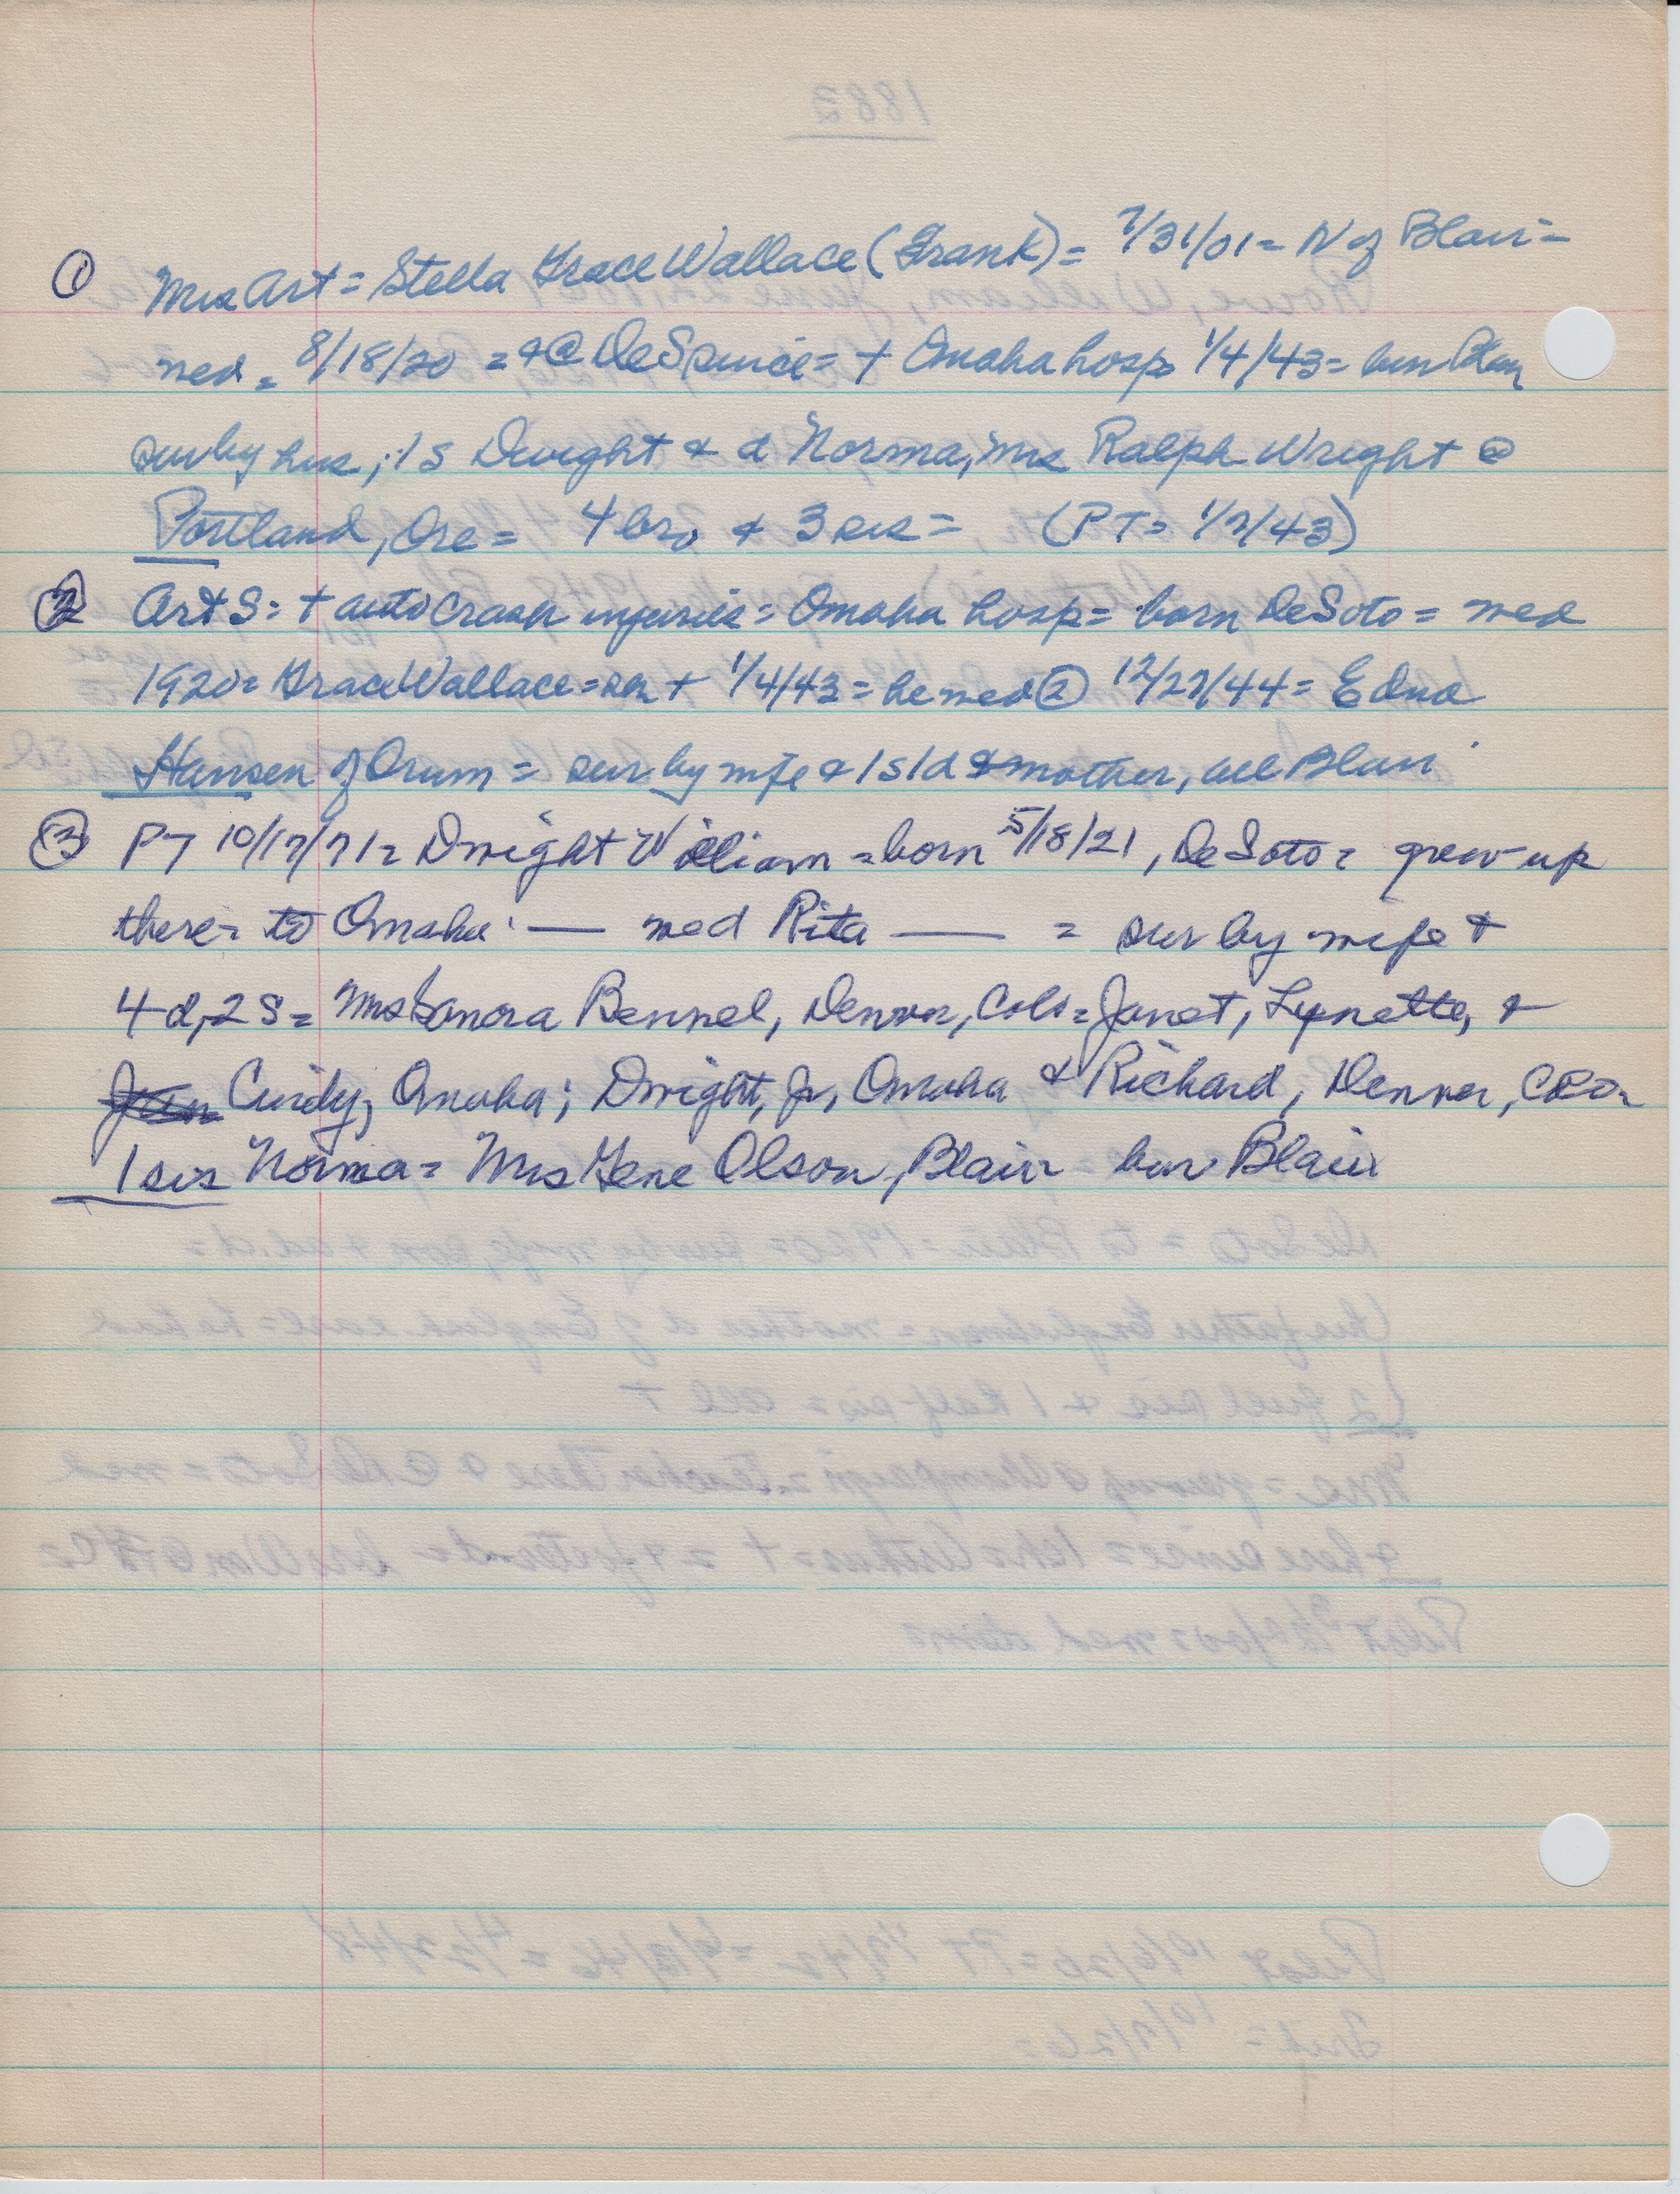 ① Mrs Art = Stella Grace Wallace (Frank) = 7/31/01 = N of Blair =
med = 8/18/20 = + @ DeS since = + Omaha hosp 1/4/43 = bur Blair
sur by hus; 1 s Dwight & d Norma, Mrs Ralph Wright @
Portland, Ore = 4 bro & 3 sis = (PT = 1/7/43)
② Art S = + auto crash injuries = Omaha hosp = born DeSoto = med
1920 = Grace Wallace = she + 1/4/43 = he med ② 12/27/44 = Edna
Hansen of Orum = sur by wife & 1 s 1 d & mother, all Blair
③ PT 10/17/71 = Dwight William = born 5/18/21, DeSoto = grew up
there = to Omaha — med Rita — = sur by wife +
4 d, 2 s = Mrs Sanora Bennel, Denver, Colo = Janet, Lynette, &
Cindy, Omaha; Dwight, Jr, Omaha & Richard, Denver, Colo =
1 sis Norma = Mrs Gene Olson, Blair = bur Blair